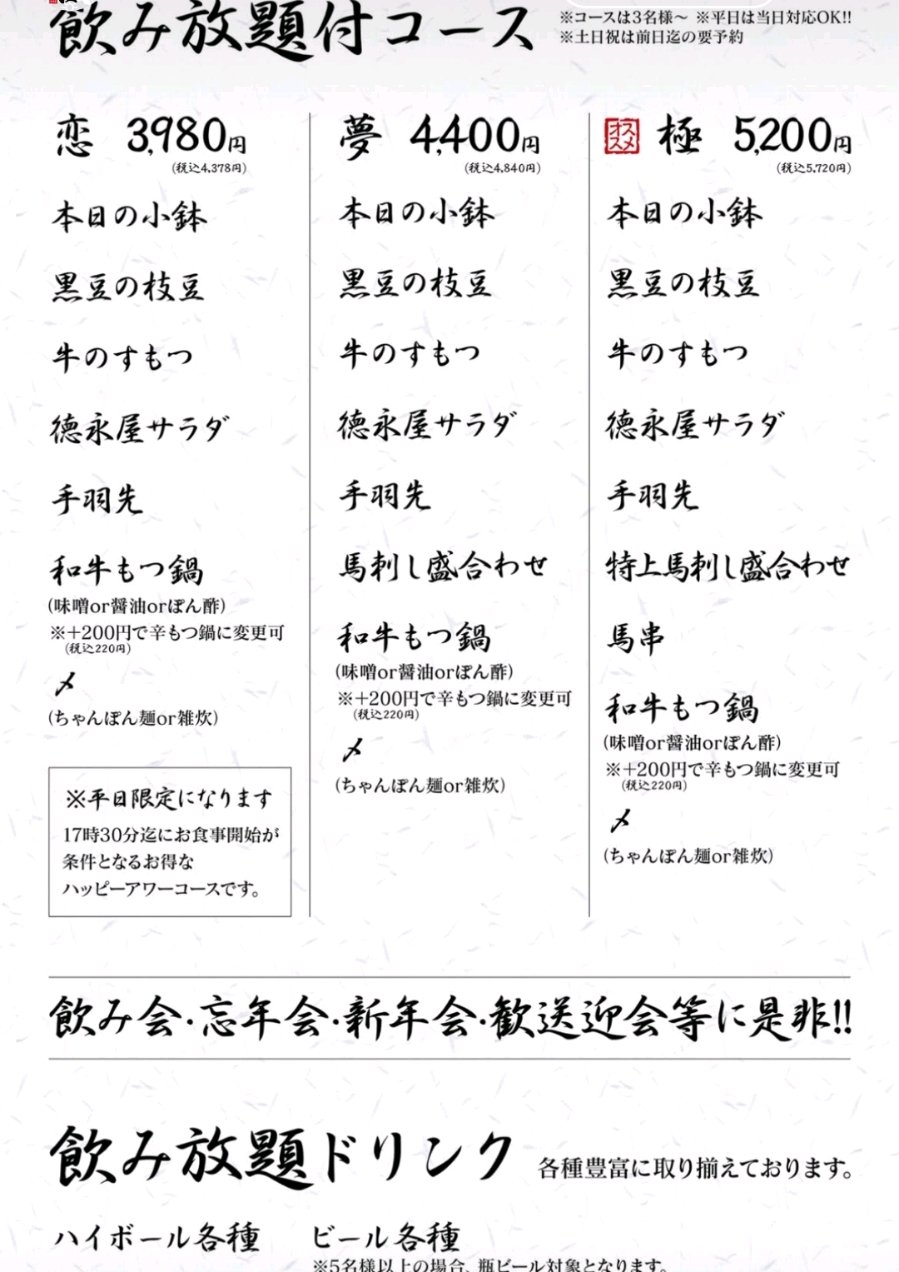 飲み放題付コース
※コースは3名様〜 ※平日は当日対応OK!!
※土日祝は前日迄の要予約
恋 3,980円
(税込4,378円)
本日の小鉢
黒豆の枝豆
牛のすもつ
徳永屋サラダ
手羽先
和牛もつ鍋
(味噌or醤油orぽん酢)
※+200円で辛もつ鍋に変更可
(税込220円)
〆
(ちゃんぽん麺or雑炊)
※平日限定になります
17時30分迄にお食事開始が
条件となるお得な
ハッピーアワーコースです。
夢 4,400円
(税込4,840円)
本日の小鉢
黒豆の枝豆
牛のすもつ
徳永屋サラダ
手羽先
馬刺し盛合わせ
和牛もつ鍋
(味噌or醤油orぽん酢)
※+200円で辛もつ鍋に変更可
(税込220円)
〆
(ちゃんぽん麺or雑炊)
オススメ 極 5,200円
(税込5,720円)
本日の小鉢
黒豆の枝豆
牛のすもつ
徳永屋サラダ
手羽先
特上馬刺し盛合わせ
馬串
和牛もつ鍋
(味噌or醤油orぽん酢)
※+200円で辛もつ鍋に変更可
(税込220円)
〆
(ちゃんぽん麺or雑炊)
飲み会·忘年会·新年会·歓送迎会等に是非!!
飲み放題ドリンク 各種豊富に取り揃えております。
ハイボール各種 ビール各種
※5名様以上の場合、瓶ビール対象となります。